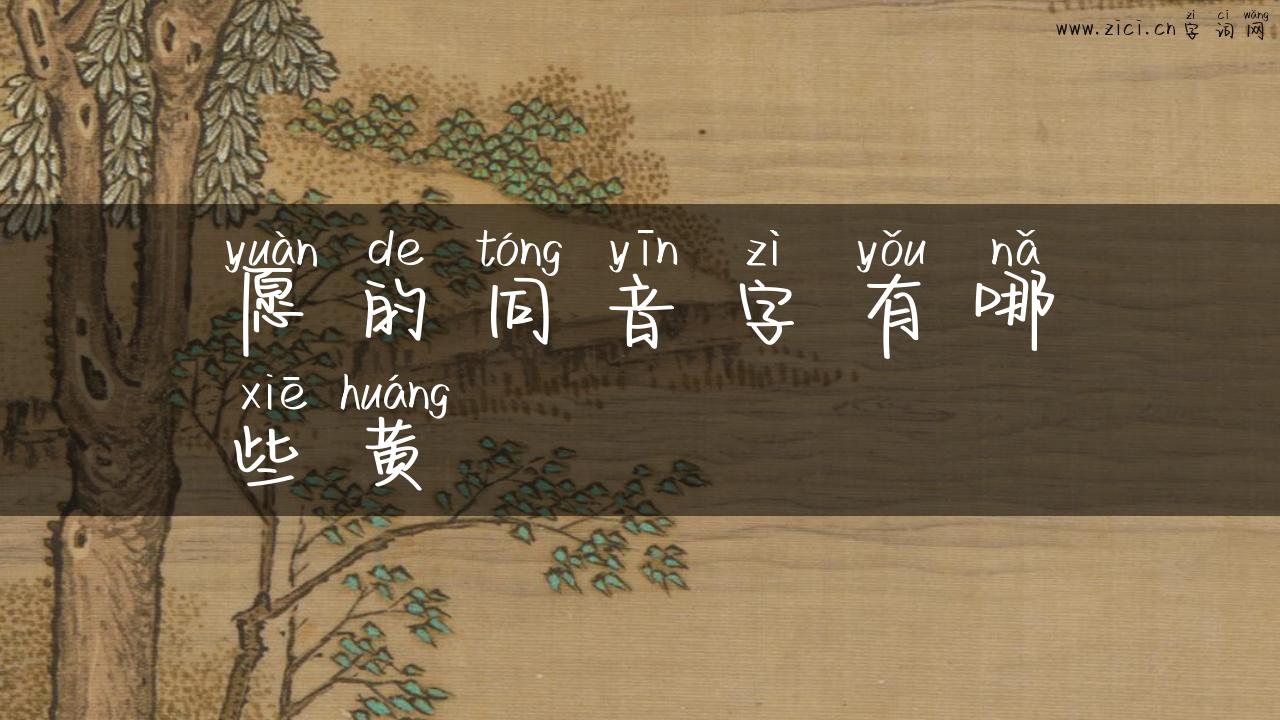 zì cí wǎng
www.zici.cn 字词网
yuàn de tóng yīn zì yǒu nǎ
愿的同音字有哪
xiē huáng
些黄